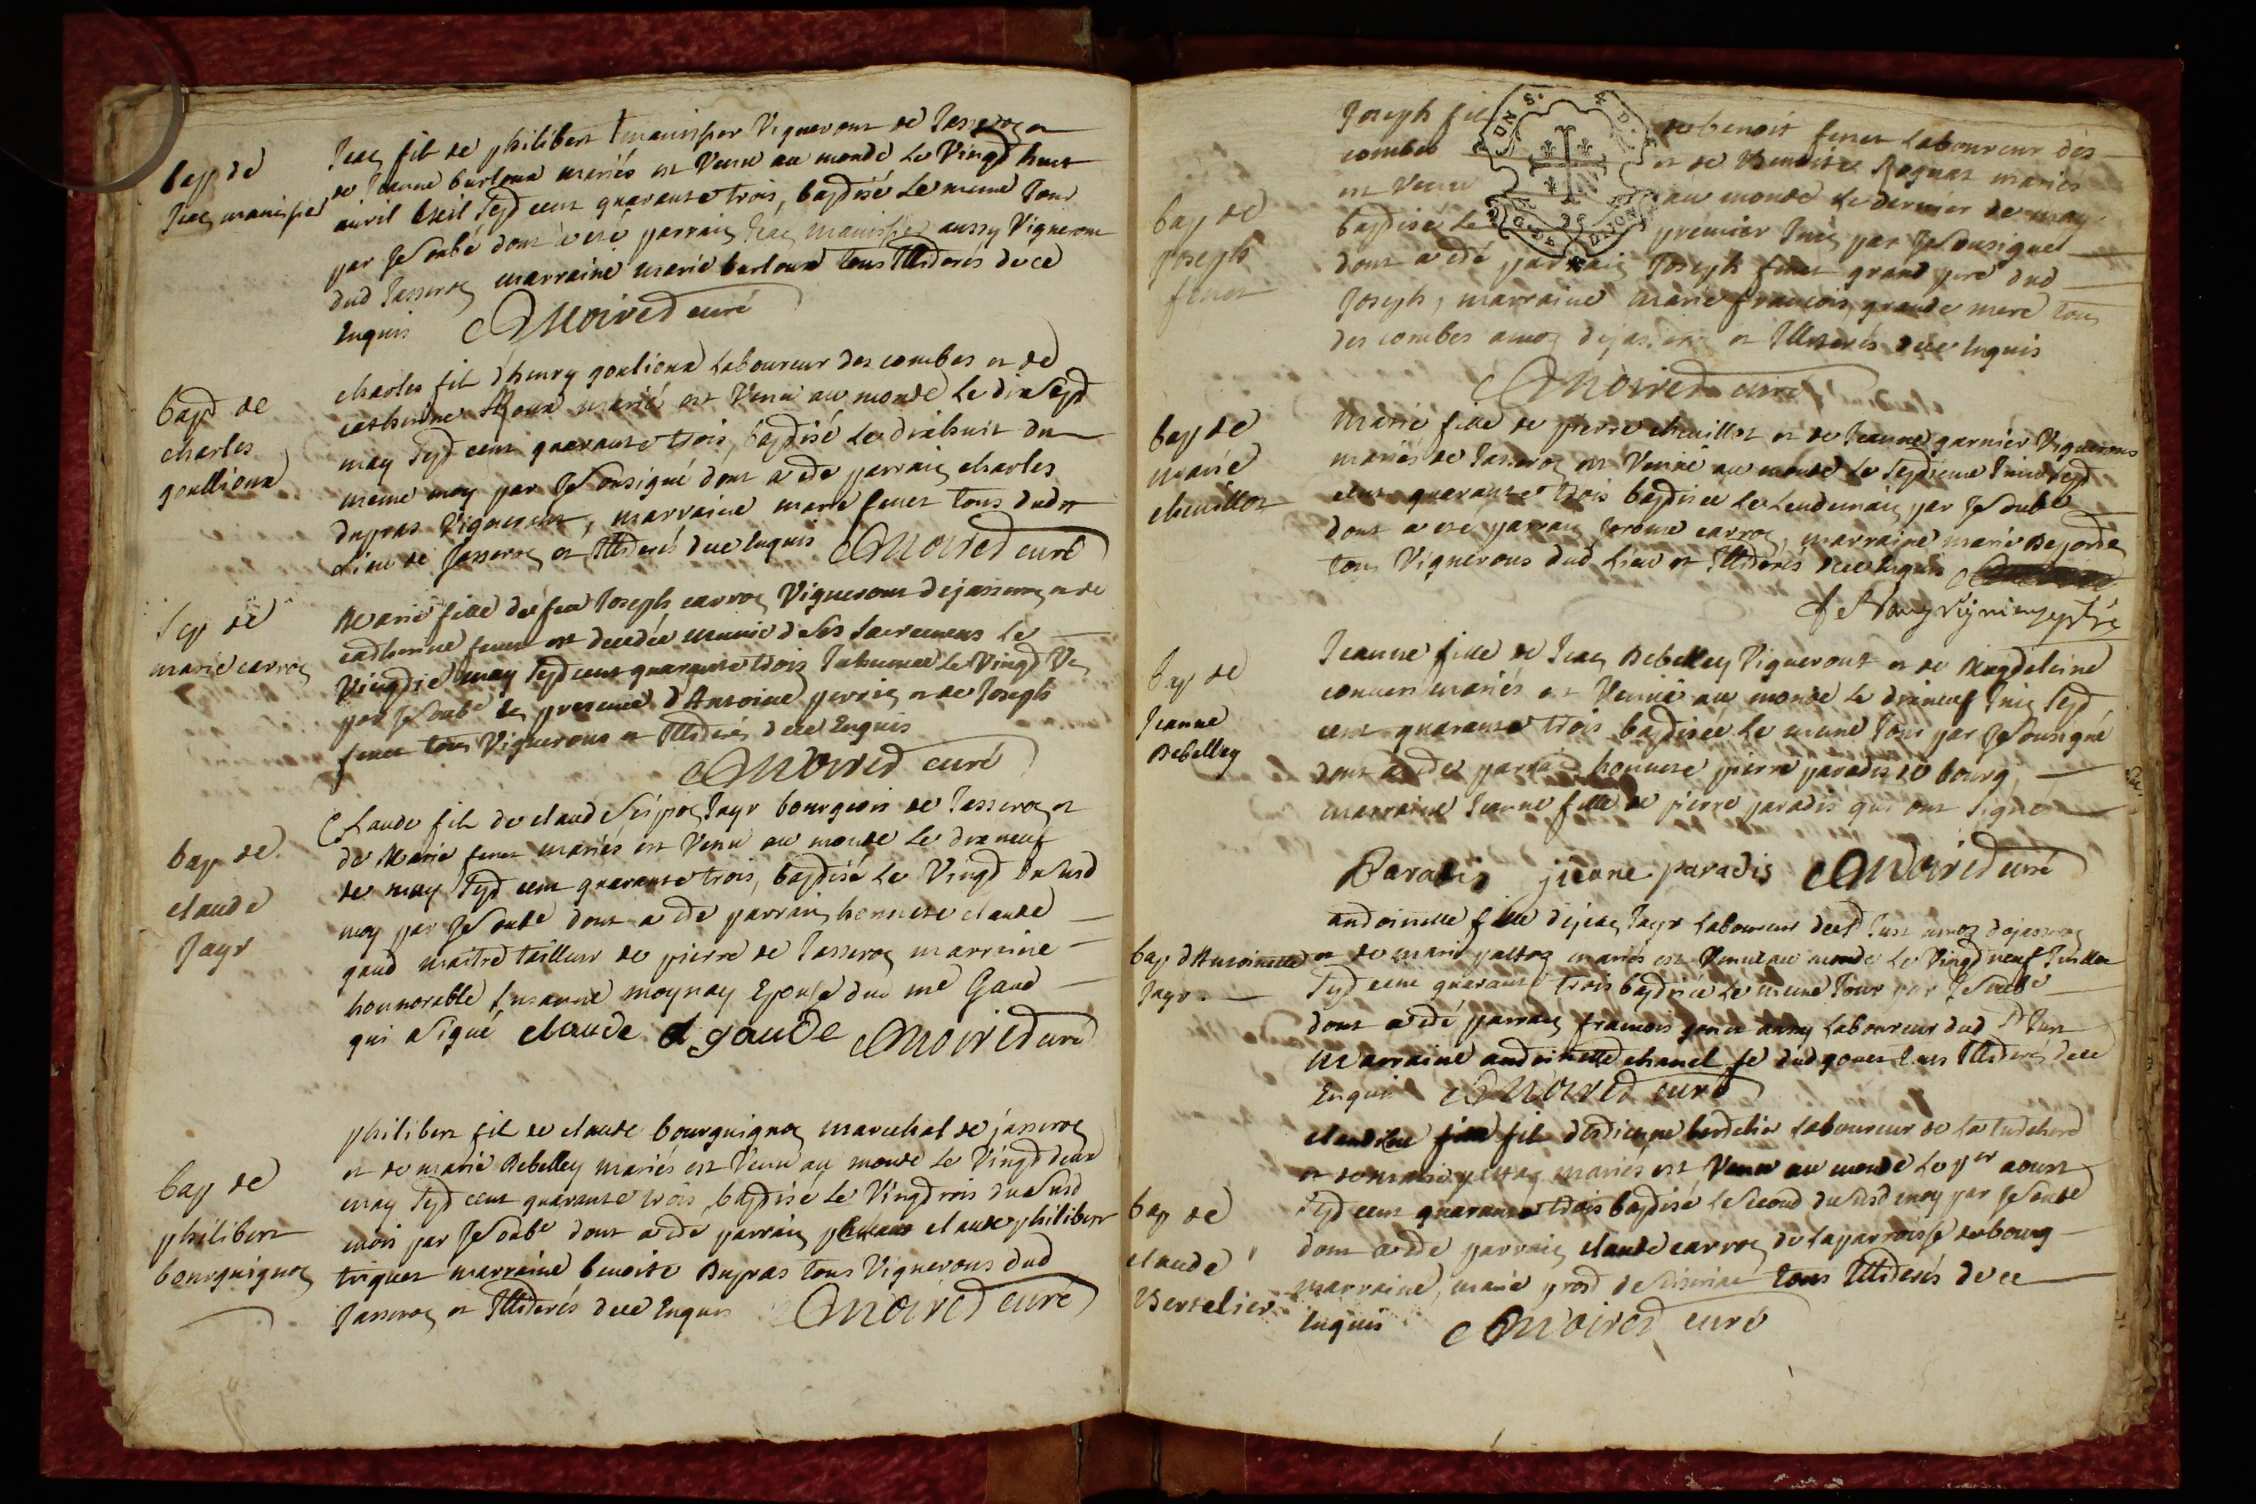 bap de
Jean manissier
Jean fils de philibert manissier Vigneront de Jasseron et
de Jeanne burloux mariés est Venu au monde le Vingt huit
avril mil sept cent quarante trois, baptisé le meme Jour
par Je soubé dont a eté parrain Jean manissier aussy Vigneron
dud Jasseron marraine marie burloux tous Illiterés de ce
Enquis Moiret curé
bapt de
charles
goullioux
charles fils d'henry goulioux Laboureur des combes et de
catherine mariés est Venu au monde le dix sept
may sept cent quarante trois, baptisé le dixhuit du
meme moy par Je sousigné dont a eté parrain charles
dupras Vigneront, marraine marie feuet tous dudt
Lieu de Jasseron et Illiterés dece Enquis Moiret curé
Sep de
marie carron
Marie fille de feu Joseph carron Vigneront de jasseron et de
catherine feuet est decedée munie de ses sacremens le
Vingtie may sept cent quarante trois Inhumée le Vingt Un
par Je soubé en presence d'Antoine perrin et de Joseph
feuet tous Vignerons et Illiterés dece Enquis
Moiret curé
bap de
claude
Jayr
Claude fils de claude Jayr bourgeois de Jasseron et
de Marie feuet mariés est Venu au monde le dix neuf
de may sept cent quarante trois, baptisé le Vingt du susd
moy par Je soubé dont a eté parrain honnete claude
gaud maitre tailleur de pierre de Jasseron marraine
honnorable Susanne moynay Epouse dud me Gaud
qui a signé claude gaude Moiret curé
bap de
philibert
bourguignon
philibert fils de claude bourguignon marechal de jasseron
et de marie Debelley mariés est Venu au monde le Vingt deux
may sept cent quarante trois, baptisé le Vingt trois du susd
mois par Je soubé dont a eté parrain claude philibert
triquet marraine benoite Dupras tous Vignerons dud
Jasseron et Illiterés dece Enquis Moiret curé
bap de
Joseph
feuet
Joseph fils de benoit feuet Laboureur des
combes et de Benoite Ragnat mariés
est Venu au monde le dernier de may
baptisé le premier Juin par Je sousigné
dont a eté parrain Joseph feuet grand pere dud
Joseph, marraine marie francois grande mere tous
des combes de jasseron et Illiterés dece Enquis
Moiret curé
bap de
marie
cheuillot
Marie fille de pierre cheuillot et de Jeanne garnier Vignerons
mariés de Jasseron est Venue au monde le septieme Juin sept
cent quarante trois baptisée le Lendemain par Je soubé
dont a eté parrain Jerome carron, marraine marie
tous Vignerons dud Lieu et Illiterés dece Enquis
bap de
Jeanne
Debelley
Jeanne fille de Jean Debelley Vigneront et de Magdeleine
convers mariés est Venue au monde le dixneuf Juin sept
cent quarante trois baptisée le meme Jour par Je sousigné
dont a eté parrain honnete pierre paradis de bourg
marraine Jeanne fille de pierre paradis qui ont signé
Paradis jieane paradis Moiret curé
bap d'Antoinette
Jayr
antoinette fille de jean Jayr Laboureur de st Just de jasseron
et de marie mariés est Venue au monde le Vingt neuf Juillet
sept cent quarante trois baptisée le meme Jour par Je soubé
dont a eté parrain francois gonet aussy Laboureur dud st Just
Marraine antoinette chanel fe dud gonet tous Illiterés dece
Enquis Moiret curé
bap de
claude
Bertelier
claude fils d'Estienne bertelier Laboureur de
et de marie mariés est Venu au monde le per aoust
sept cent quarante trois baptisé le second du susd moy par Je soubé
dont a eté parrain claude carron de la parroisse de bourg
marraine, marie tous Illiterés de ce
Enquis Moiret curé